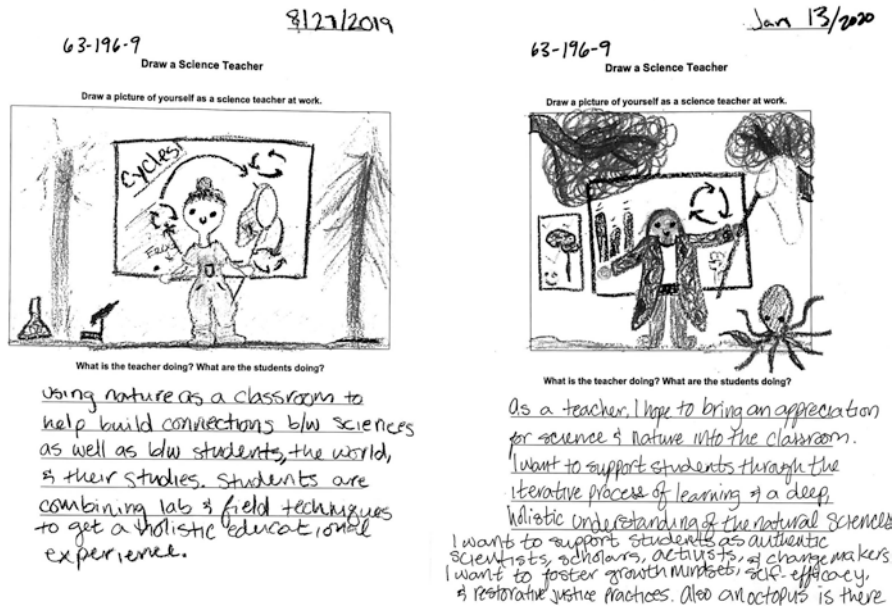 8/27/2019
63-196-9
Draw a Science Teacher
Draw a picture of yourself as a science teacher at work.
Cycles!
What is the teacher doing? What are the students doing?
using nature as a classroom to
help build connections b/w sciences
as well as b/w students, the world,
& their studies. Students are
combining lab & field techniques
to get a holistic educational
experience.
Jan 13/2020
63-196-9
Draw a Science Teacher
Draw a picture of yourself as a science teacher at work.
What is the teacher doing? What are the students doing?
As a teacher, I hope to bring an appreciation
for science & nature into the classroom.
I want to support students through the
iterative process of learning & a deep,
holistic understanding of the natural sciences
I want to support students as authentic
scientists, scholars, activists, & change makers.
I want to foster growth mindset, self-efficacy,
& restorative justice practices. Also an octopus is there